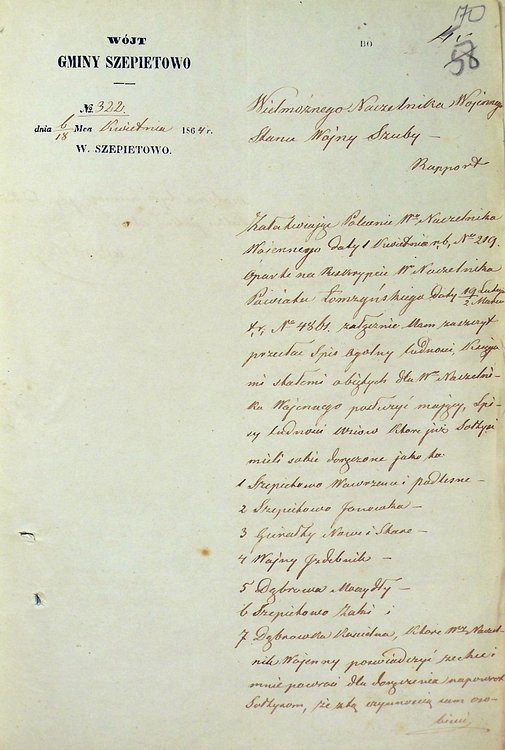 170
58
WÓJT
GMINY SZEPIETOWO
BO
№ 322
dnia 6/18 Mca Kwietnia 1864 r.
W. SZEPIETOWO.
Wielmożnego Naczelnika Wojennego
Stanu Wojny Szuby
Rapport
Załatwiając Polecenie Wo Naczelnika
Wojennego daty 1 Kwietnia r.b. No 219.
oparte na Reskrypcie W Naczelnika
Powiatu Łomzyńskiego daty 19 Lutego / 2 Marca
t.r. No 4861. załącznie Mam zaszczyt
przesłać Spis ogolny ludności, Księga
mi stałemi objętych dla Wo Naczelni-
ka Wojennego posłużyć mający, Spi-
sy ludności wsiow które już Sołtysi
mieli sobie doręczone jako to
1 Szepietowo Wawrzeńce i podleśne –
2 Szepietowo Janowka –
3 Gierałty Nowe i Stare –
4 Wojny Izdebnik –
5 Dąbrowa Moczydły –
6 Szepietowo Żaki i
7 Dąbrowka Kościelna, które Wny Naczel-
nik Wojenny poswiadczyć zechce i
mnie powróci dla doręczenia napowrot
Sołtysom, że zaś czynnością sam oso-